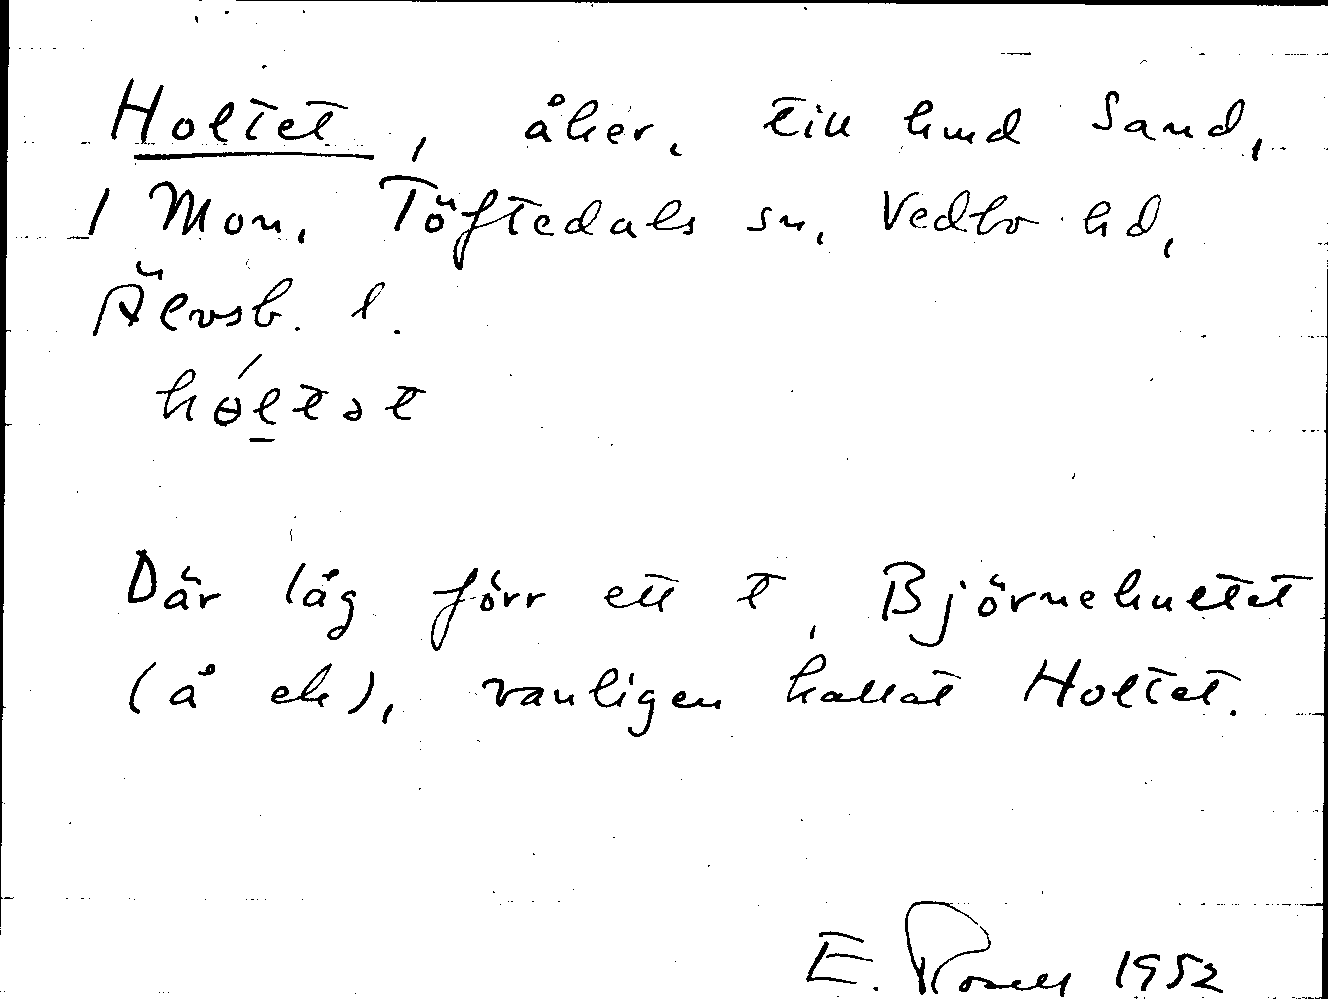 Holtet, åker, till hmd Sand,
1 Mon, Töftedals sn, Vedbo hd,
Älvsb. l.
hɵ́ltət
Där låg förr ett t, Björnehultet
(å ek), vanligen kallat Holtet.
E. Rosell 1952